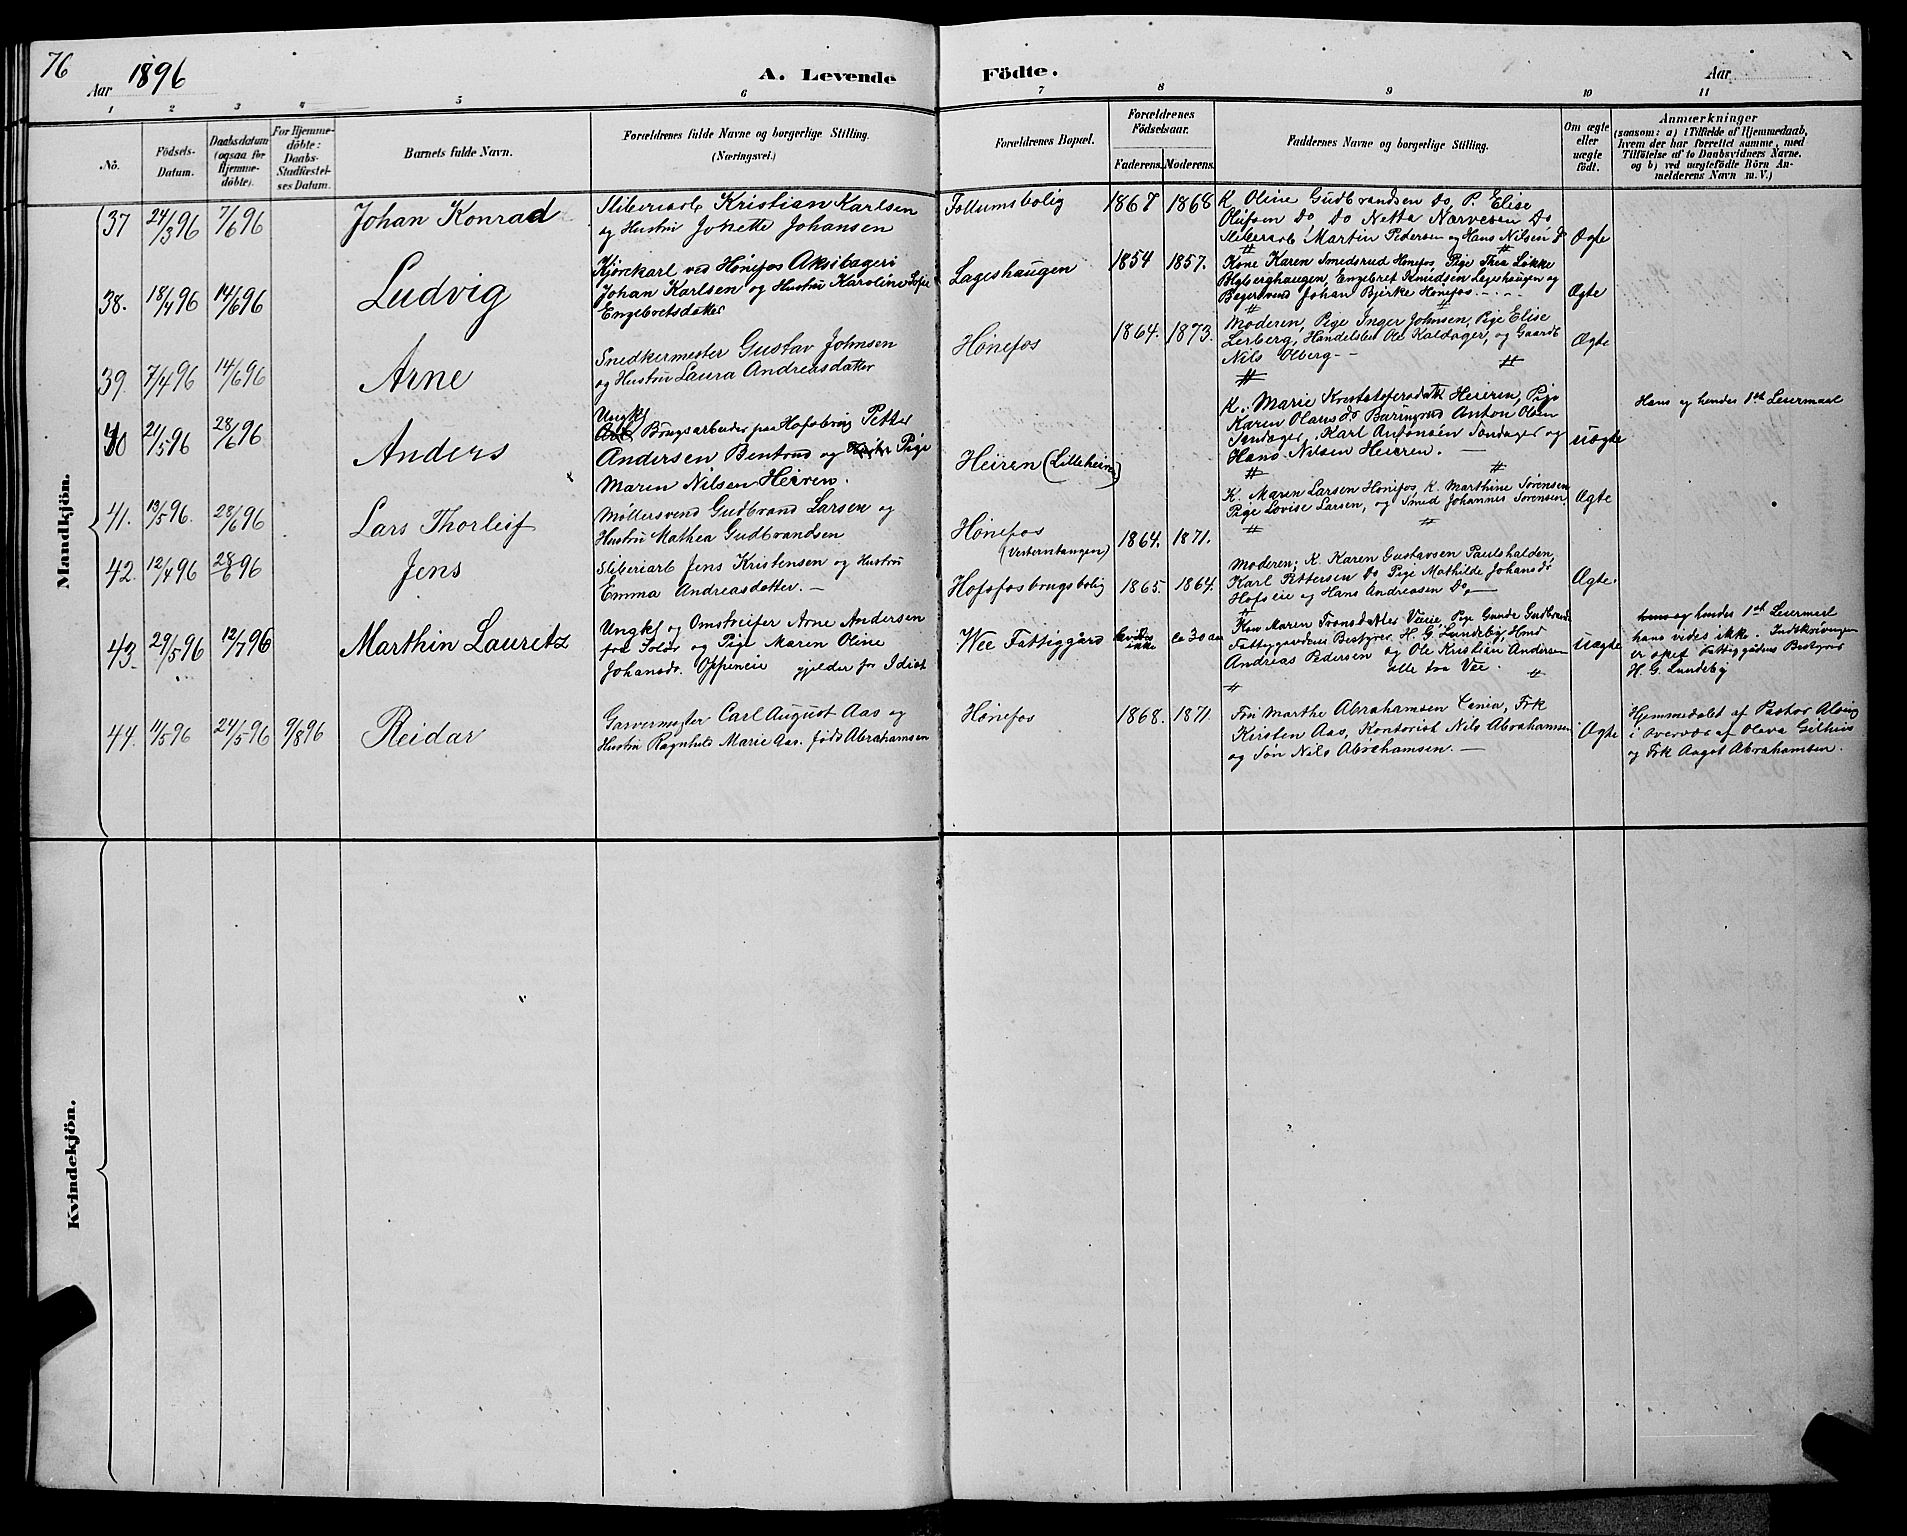 76
Aar 1896 A. Levende Födte. Aar
1 2 3 4 5 6 7 8 9 10 11
Nö.
Födsels-Datum.
Daabsdatum (ogsaa for Hjemme-döbte).
For Hjemme-döbte: Daabs-Stadfæstel-ses Datum.
Barnets fulde Navn.
Forældrenes fulde Navne og borgerlige Stilling.
(Næringsvei.)
Forældrenes Bopæl.
Forældrenes Födselsaar.
Faderens. Moderens.
Faddernes Navne og borgerlige Stilling.
Om ægte eller uægte födt.
Anmærkninger
(saasom: a) i Tilfælde af Hjemmedaab,
hvem der har forrettet samme, med
Tilföielse af to Daabsvidners Navne.
og b) ved uægtefödte Börn An-
melderens Navn m. V.)
Mandkjön.
37 24/3 96 7/6 96 Johan Konrad
Sliberiarb Kristian Karlsen
og Hustru Johette Johansen
Follumsbolig 1867 1868
K Oline Gudbrandsen Do, P. Elise
Olufsen Do, Do Netta Narvesen Do
Sliberiarb Martin Pedersen og Hans Nilsen, D
Ægte
38. 18/4 96 14/6 96 Ludvig
Kjørekarl ved Hønefos Aksjebageri
Johan Karlsen og Hustru Karoline Sofie
Engebretsdatter
Lageshaugen 1854 1857.
Kone Karen Smedsrud Hønefos, Pige Thea Løkke
Blyberghaugen, Engebret Knudsen Lageshaugen og
Bagersvend Johan Bjerke Hønefos
Ægte
39. 7/4 96 14/6 96 Arne
Snedkermester Gustav Johnsen
og Hustru Laura Andreasdatter
Hønefos 1864. 1873.
Moderen, Pige Inger Johnsen, Pige Elise
Lerberg, Handelsbet Ole Kaldager, og Gaardb
Nils Olberg
Ægte
40 21/5 96 28/6 96 Anders
Ungkl
Arb Brugsarbeider paa Hofsbrug Petter
Andersen Bentrud og Hustru Pige
Maren Nilsen Heieren.
Heiren (Lilleheiren)
K. Marie Kristofersdatr Heieren, Pige
Karen Olausdr Baringrud Anton Olsen
Tandager, Karl Antonsen Tandager og
Hans Nilsen Heieren.
uægte
Hans og hendes 1ste Leiermaal
41. 13/5 96. 28/6 96 Lars Thorleif
Møllersvend Gudbrand Larsen og
Hustru Mathea Gudbrandsen
Hønefos
(Vesterntangen) 1864. 1871.
K. Maren Larsen Hønefos, K. Marthine Sørensen
Pige Lovise Larsen, og Smed Johannes Sørensen
Ægte
42. 12/4 96 28/6 96 Jens
Sliberiarb Jens Kristensen og Hustru
Emma Andreasdatter.
Hofsfosbrugsbolig 1865. 1864.
Moderen; K. Karen Gustavsen Paulshalden,
Karl Pettersen Do Pige Mathilde Johansdr
Hofseie og Hans Andreasen Do
Ægte.
43. 29/5 96 12/7 96 Marthin Lauritz
Ungkl og Omstreifer Arne Andersen
fra Solør og Pige Maren Oline
Johansdr. Oppeneie gjelder for Idiot
Wee Fattiggård vides ikke ca 30 aar
Kone Maren Trondsdatter Veeie, Pige Gunda Gudbrandsd
Fattiggaardens Bestyrer H. G. Lundeby, Hmd
Andreas Pedersen og Ole Kristian Andersen
alle fra Vee.
uægte
hans og hendes 1ste Leiermaal
hans vides ikke. Indskrivningen
er skeet Fattiggårdens Bestyrer
H. G. Lundeby
44. 11/5 96 24/5 96 9/8 96 Reidar
Garvermester Carl August Aas og
Hustru Ragnhild Marie Aas. født Abrahamsen
Hønefos 1868. 1871.
Frü Marthe Abrahamsen, Frk
Kirsten Aas, Kontorist Nils Abrahamsen
og Søn Nils Abrahamsen.
Ægte
Hjemmedøbt af Pastor Alvig
i overvær af Olava Gilhus
og Frk Aagot Abrahamsen.
Kvindekjön.